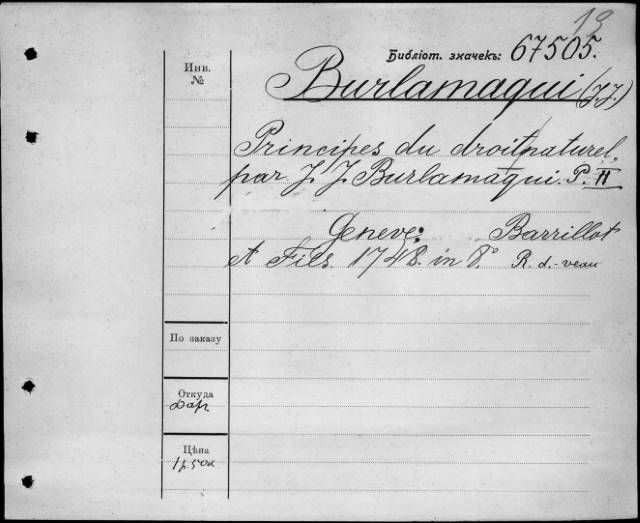 13
Библіот. значекъ: 67505.
Инв.
№
Burlamaqui (J.J.)
Principes du droit naturel,
par J J Burlamaqui. P. II
Geneve: Barrillot
et Fils. 1748. in 8° R. d.-veau
По заказу
Откуда
Даръ
Цѣна
1 р. 50 к